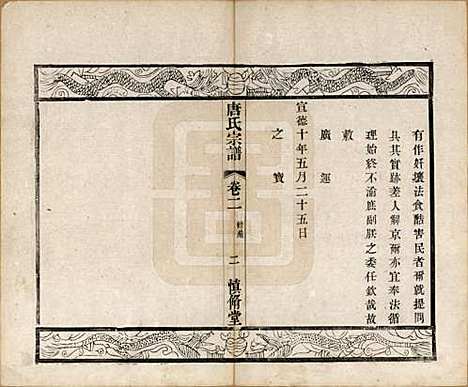 有作奸壞法貪酷害民者爾就提問
具其實跡差人解京爾亦宜奉法循
理始終不渝庶副朕之委任欽哉故
敕
廣運
宣德十年五月二十五日
之寶
唐氏宗譜
卷二
二
慎脩堂